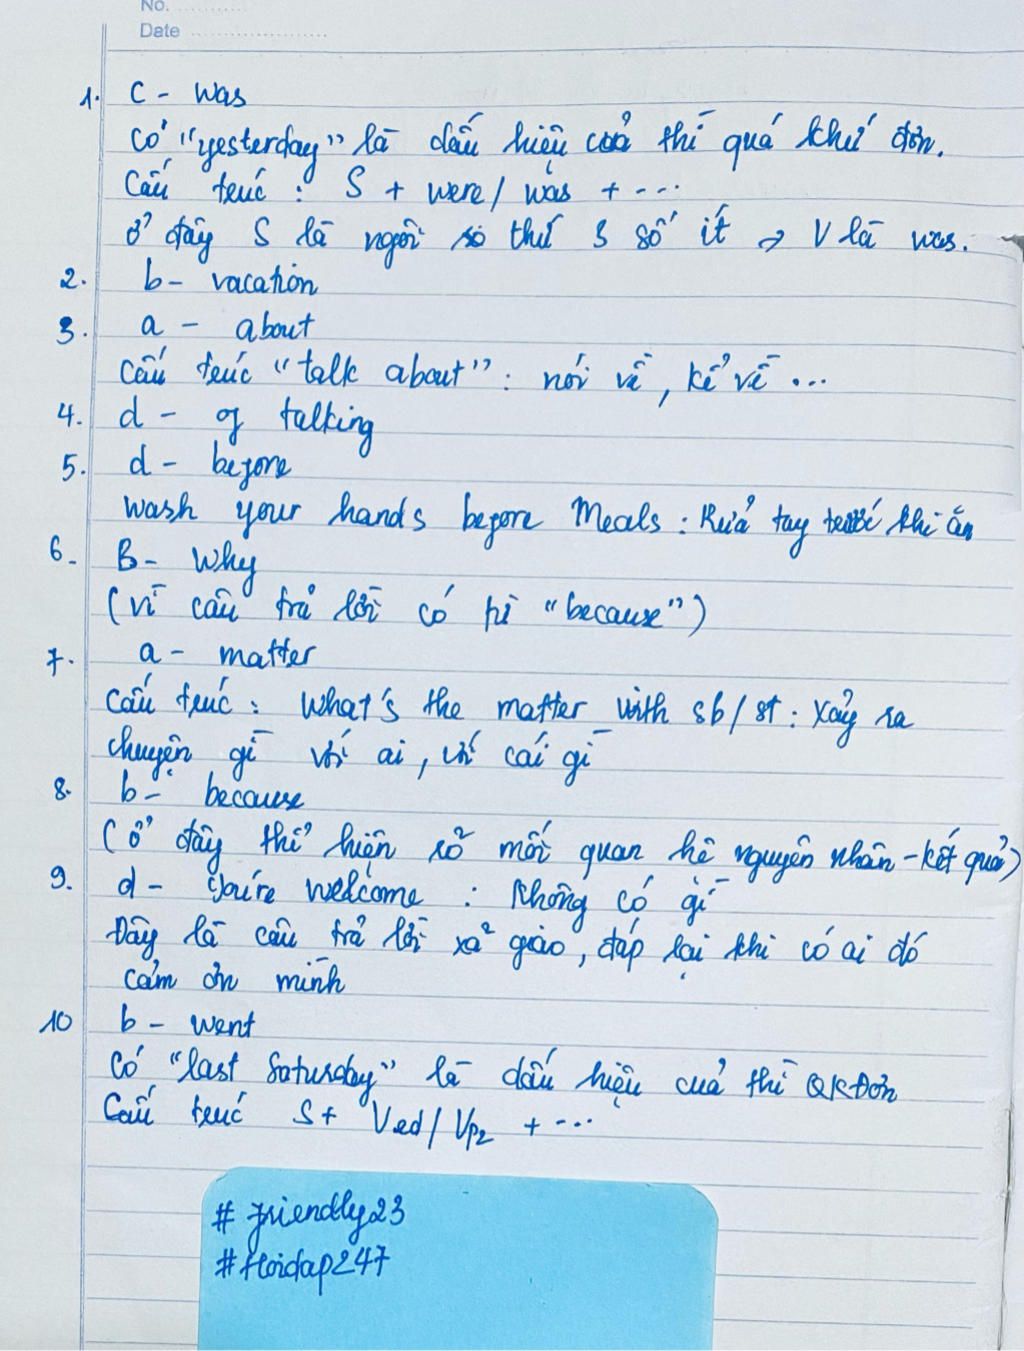 No. ............
Date ........................
1. c - was
Có "yesterday" là dấu hiệu của thì quá khứ đơn.
Cấu trúc : S + were / was + ...
Ở đây S là ngôi số thứ 3 số ít → V là was.
2. b - vacation
3. a - about
Cấu trúc "talk about" : nói về, kể về ...
4. d - of talking
5. d - before
Wash your hands before Meals : Rửa tay trước khi ăn
6. B - Why
(vì câu trả lời có từ "because")
7. a - matter
Cấu trúc : What's the matter with sb / st : Xảy ra
chuyện gì với ai, với cái gì
8. b - because
(Ở đây thể hiện rõ mối quan hệ nguyên nhân - kết quả)
9. d - You're welcome : Không có gì
Đây là câu trả lời xã giao, đáp lại khi có ai đó
cảm ơn mình
10 b - went
Có "last Saturday" là dấu hiệu của thì QKĐơn
Cấu trúc S + Ved / Vp2 + ...
# friendly23
# hoidap247